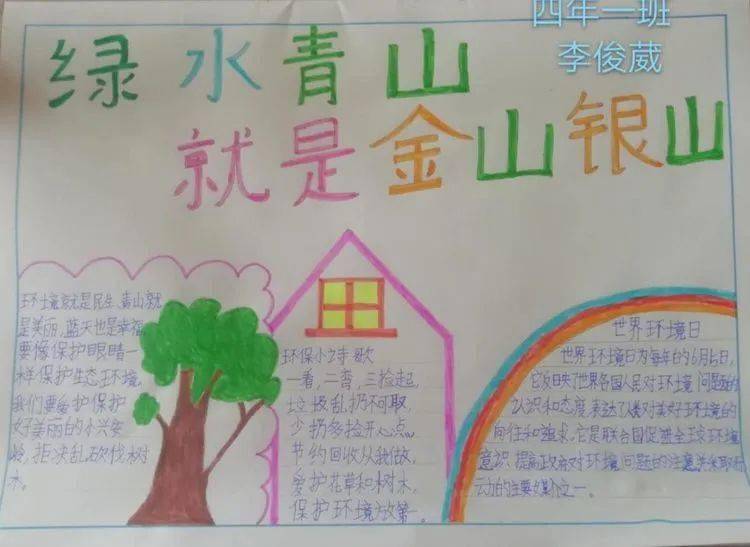 四年一班
李俊葳
绿水青山
就是金山银山
环境就是民生,青山就
是美丽,蓝天也是幸福
要像保护眼睛一
样保护生态环境,
我们要爱护保护
好美丽的小兴安
岭,拒决乱砍伐树
木。
环保小诗歌
一看,二弯,三捡起,
垃圾乱扔不可取,
少扔多捡开心点。
节约回收从我做,
爱护花草和树木,
保护环境放第一。
世界环境日
世界环境日为每年的6月5日,
它反映了世界各国人民对环境问题的
认识和态度,表达了人类对美好环境的
向往和追求。它是联合国促进全球环境
意识、提高政府对环境问题的注意并采取行
动的主要媒介之一。